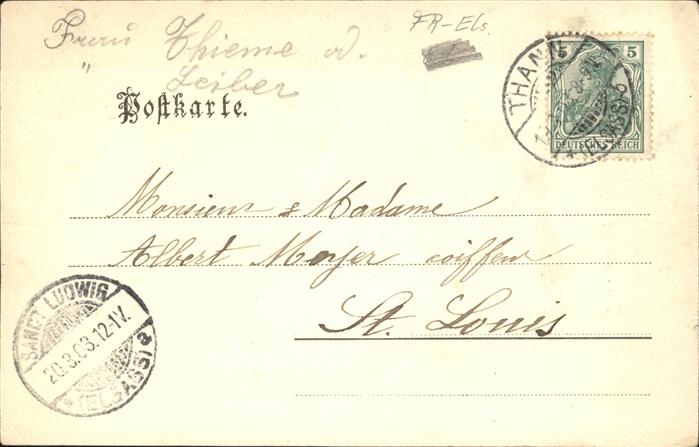 Frau Thieme od.
" Leiber
FR-Els.
Postkarte.
THANN
(ELSASS)
5 5
DEUTSCHES REICH
Monsieur & Madame
Albert Meyer coiffeur
St. Louis
SANCT LUDWIG
20.3.03.12-1V.
* (ELSASS) a